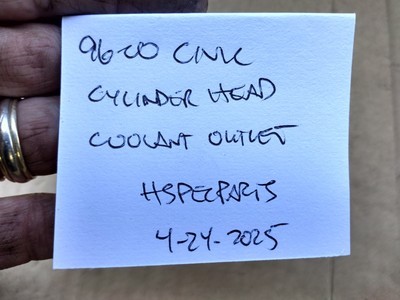 96-00 CIVIC
CYLINDER HEAD
COOLANT OUTLET
HSPECPARTS
4-24-2025